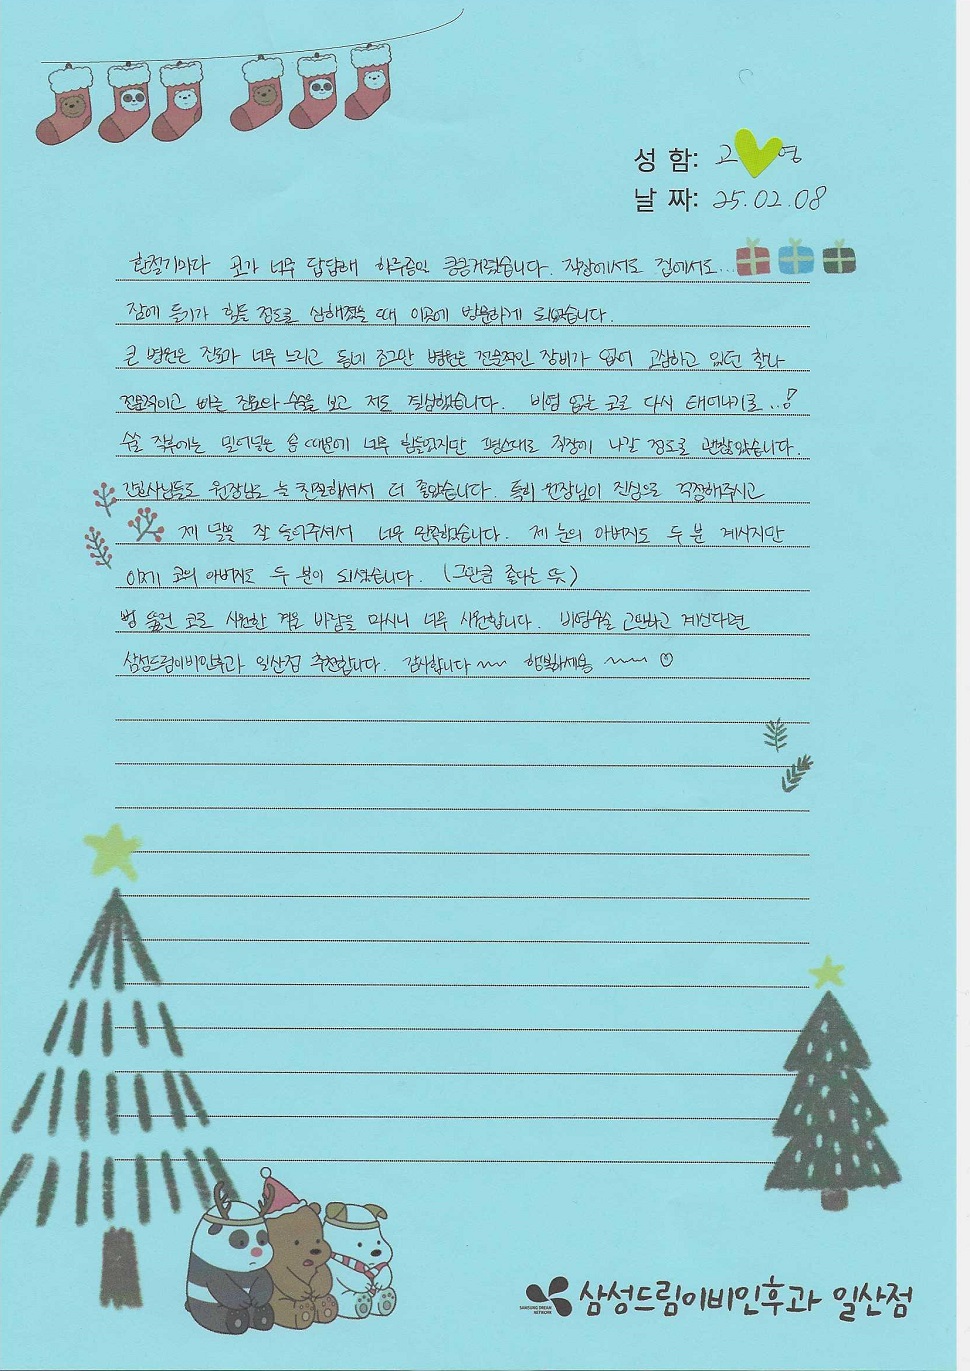 성 함: 고 영
날 짜: 25.02.08
환절기마다 코가 너무 답답해 하루종일 킁킁거렸습니다. 직장에서도 집에서도...
잠에 들기가 힘들 정도로 심해졌을 때 이곳에 방문하게 되었습니다.
큰 병원은 진료가 너무 느리고 동네 조그만 병원은 전문적인 장비가 없어 고심하고 있던 찰나
전문적이고 빠른 진료와 수술을 보고 저도 결심했습니다. 비염 없는 코로 다시 태어나기로..!
수술 직후에는 밀어넣은 솜 때문에 너무 힘들었지만 평소대로 직장에 나갈 정도로 괜찮았습니다.
간호사님들도 원장님도 늘 친절하셔서 더 좋았습니다. 특히 원장님이 진심으로 걱정해주시고
제 말을 잘 들어주셔서 너무 만족했습니다. 제 눈의 아버지도 두 분 계시지만
이제 코의 아버지도 두 분이 되셨습니다. (그만큼 좋다는 뜻)
뻥 뚫린 코로 시원한 겨울 바람을 마시니 너무 시원합니다. 비염수술 고민하고 계신다면
삼성드림이비인후과 일산점 추천합니다. 감사합니다~~ 행복하세용 ~~ ♡
SAMSUNG DREAM
NETWORK
삼성드림이비인후과 일산점